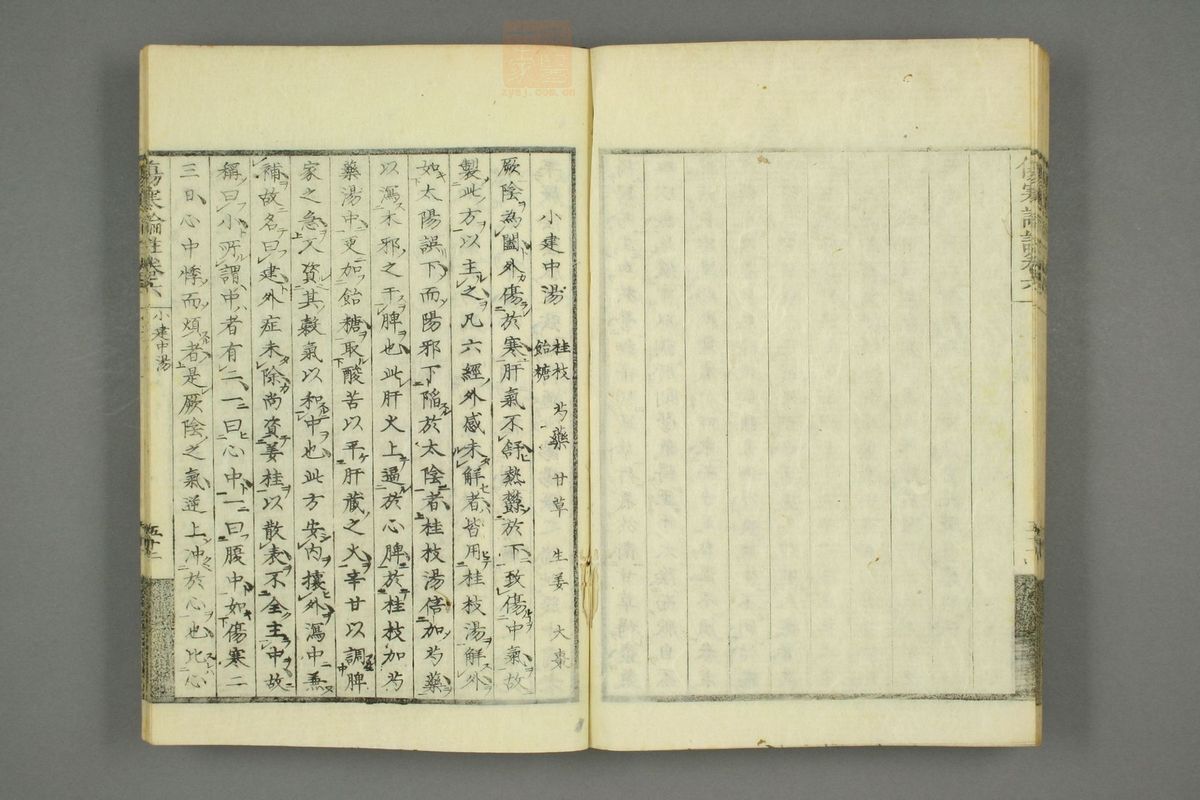 傷寒論註卷六
小建中湯 桂枝 芍藥 甘草 生姜 大棗
飴糖
厥陰為闔外傷於寒肝氣不舒熱欝於下致傷中氣故
製此方以主之凡六經外感未解者皆用桂枝湯解外
如太陽誤下而陽邪下陷於太陰者桂枝湯倍加芍藥
以瀉木邪之干脾也此肝火上逼於心脾於桂枝加芍
藥湯中更加飴糖取酸苦以平肝藏之火辛甘以調脾
家之急又資其穀氣以和中也此方安內攘外瀉中兼
補故名曰建外症未除尚資姜桂以散表不全主中故
稱曰小所謂中者有二一曰心中一曰腹中如傷寒二
三日心中悸而煩者是厥陰之氣逆上冲於心也比心
傷寒論註卷六
小建中湯
zysj.com.cn